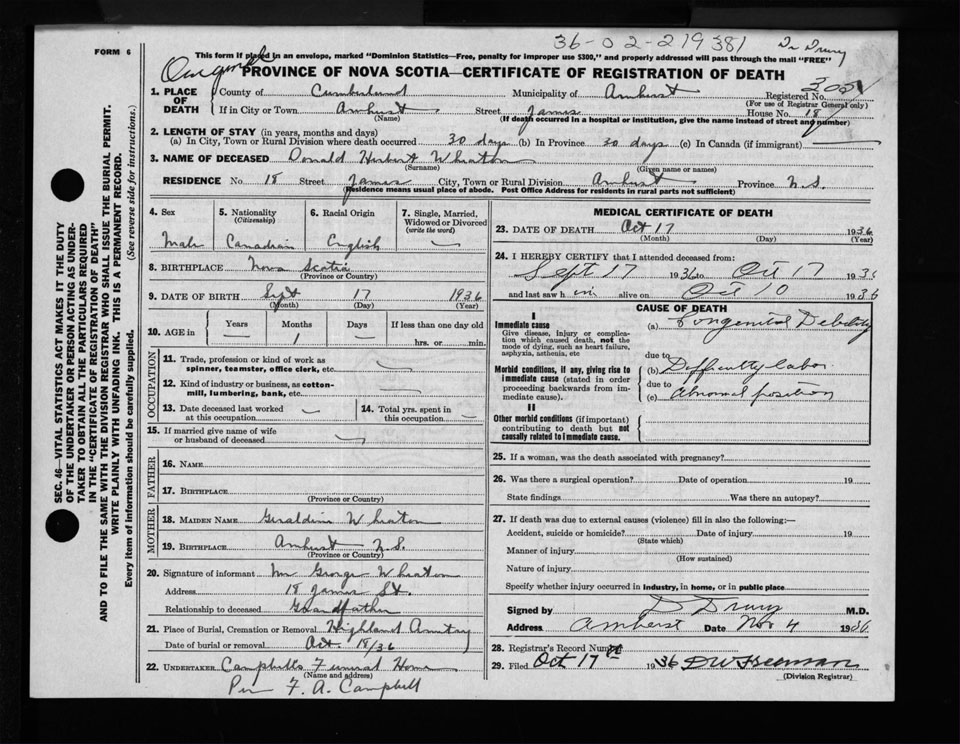 36-02-219381
Dr Drury
FORM 6
This form if placed in an envelope, marked "Dominion Statistics—Free, penalty for improper use $300," and properly addressed will pass through the mail "FREE"
Original
PROVINCE OF NOVA SCOTIA—CERTIFICATE OF REGISTRATION OF DEATH
1. PLACE OF DEATH
County of Cumberland Municipality of Amherst Registered No.
(For use of Registrar General only)
If in City or Town Amherst Street James House No. 18
(Name) (If death occurred in a hospital or institution, give the name instead of street and number)
2. LENGTH OF STAY (in years, months and days)
(a) In City, Town or Rural Division where death occurred 30 days (b) In Province 30 days (c) In Canada (if immigrant)
3. NAME OF DECEASED Donald Herbert Wheaton
(Surname) (Given name or names)
RESIDENCE No 18 Street James City, Town or Rural Division Amherst Province N.S.
(Residence means usual place of abode. Post Office Address for residents in rural parts not sufficient)
4. Sex Male
5. Nationality (Citizenship) Canadian
6. Racial Origin English
7. Single, Married, Widowed or Divorced (write the word) —
8. BIRTHPLACE Nova Scotia
(Province or Country)
9. DATE OF BIRTH Sept 17 1936
(Month) (Day) (Year)
10. AGE in Years Months Days If less than one day old
— 1 — hrs. or min.
OCCUPATION
11. Trade, profession or kind of work as spinner, teamster, office clerk, etc. —
12. Kind of industry or business, as cotton-mill, lumbering, bank, etc. —
13. Date deceased last worked at this occupation —
14. Total yrs. spent in this occupation —
15. If married give name of wife or husband of deceased —
FATHER
16. NAME
17. BIRTHPLACE
(Province or Country)
MOTHER
18. MAIDEN NAME Geraldine Wheaton
19. BIRTHPLACE Amherst N.S.
(Province or Country)
20. Signature of informant Mr George Wheaton
Address 18 James St.
Relationship to deceased Grandfather
21. Place of Burial, Cremation or Removal Highland
Date of burial or removal Oct. 18/36
22. UNDERTAKER Campbells Funeral Home
(Name and address)
Per F. A. Campbell
MEDICAL CERTIFICATE OF DEATH
23. DATE OF DEATH Oct 17 1936
(Month) (Day) (Year)
24. I HEREBY CERTIFY that I attended deceased from:
Sept 17 1936 to Oct 17 1936
and last saw him alive on Oct 10 1936
CAUSE OF DEATH
I
Immediate cause
Give disease, injury or complication which caused death, not the mode of dying, such as heart failure, asphyxia, asthenia, etc
(a) Congenital Debility
due to
Morbid conditions, if any, giving rise to immediate cause (stated in order proceeding backwards from immediate cause).
(b) Difficulty labor
due to
(c) Abnormal position
II
Other morbid conditions (if important) contributing to death but not causally related to immediate cause.
25. If a woman, was the death associated with pregnancy?
26. Was there a surgical operation? Date of operation 19
State findings Was there an autopsy?
27. If death was due to external causes (violence) fill in also the following:—
Accident, suicide or homicide? Date of injury 19
(State which)
Manner of injury
(How sustained)
Nature of injury
Specify whether injury occurred in industry, in home, or in public place
Signed by D Drury M.D.
Address Amherst Date Nov 4 1936
28. Registrar's Record Number
29. Filed Oct 17th 1936 D W Freeman
(Division Registrar)
SEC. 46—VITAL STATISTICS ACT MAKES IT THE DUTY
OF THE UNDERTAKER OR PERSON ACTING AS UNDER-
TAKER TO OBTAIN ALL THE PARTICULARS REQUIRED
IN THE "CERTIFICATE OF REGISTRATION OF DEATH"
AND TO FILE THE SAME WITH THE DIVISION REGISTRAR WHO SHALL ISSUE THE BURIAL PERMIT.
WRITE PLAINLY WITH UNFADING INK. THIS IS A PERMANENT RECORD.
Every item of information should be carefully supplied. (See reverse side for instructions.)